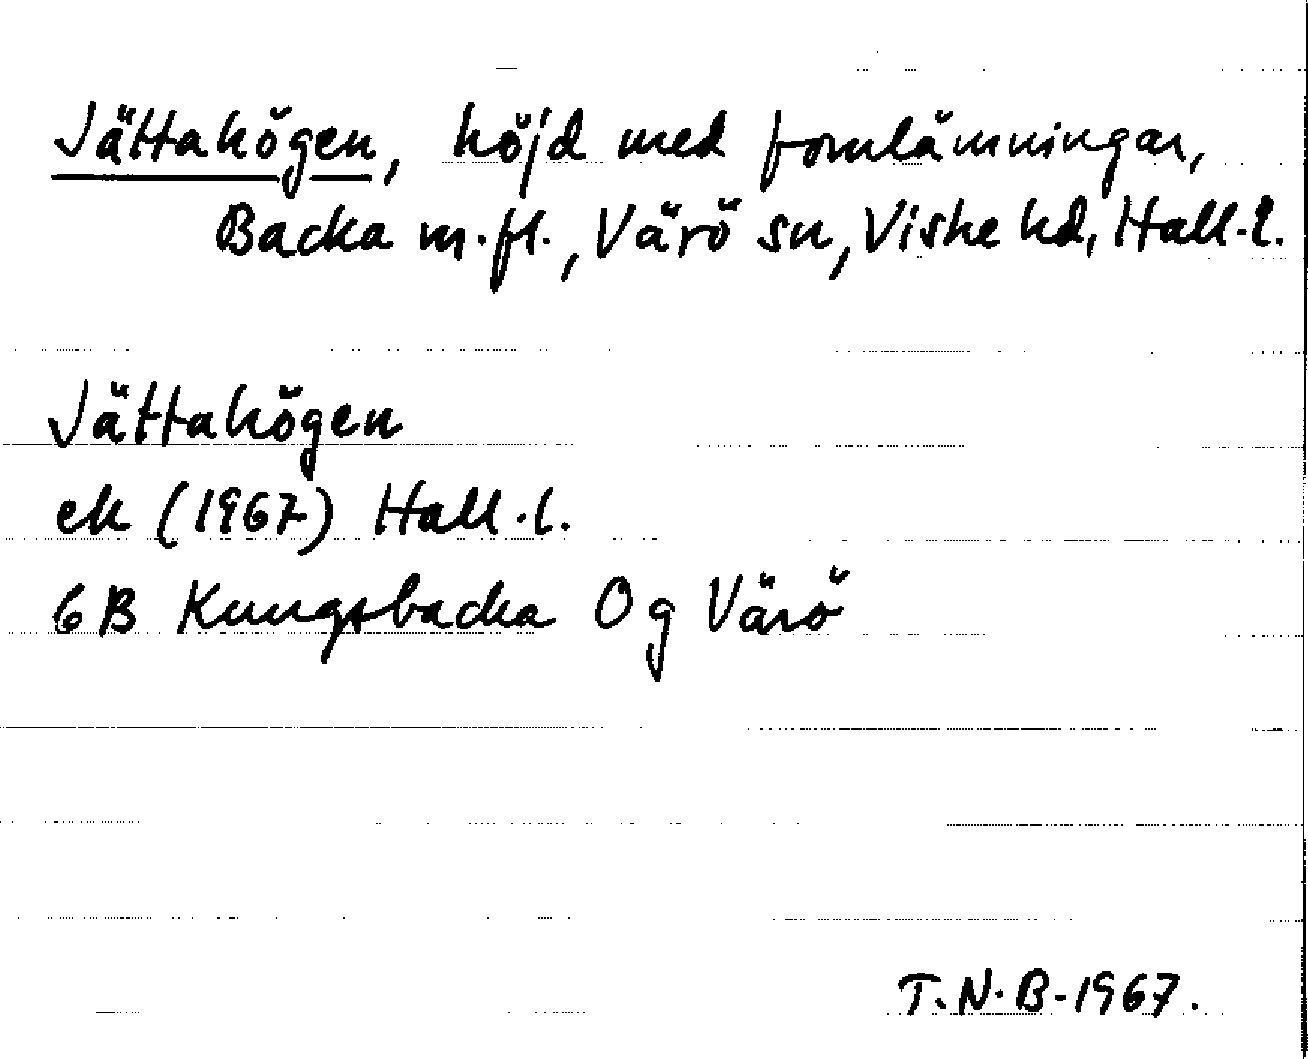 Jättahögen, höjd med fornlämningar,
Backa m.fl., Värö sn, Viske hd, Hall.l.
Jättahögen
ek (1967) Hall.l.
6B Kungsbacka 0g Värö
T.N.B-1967.